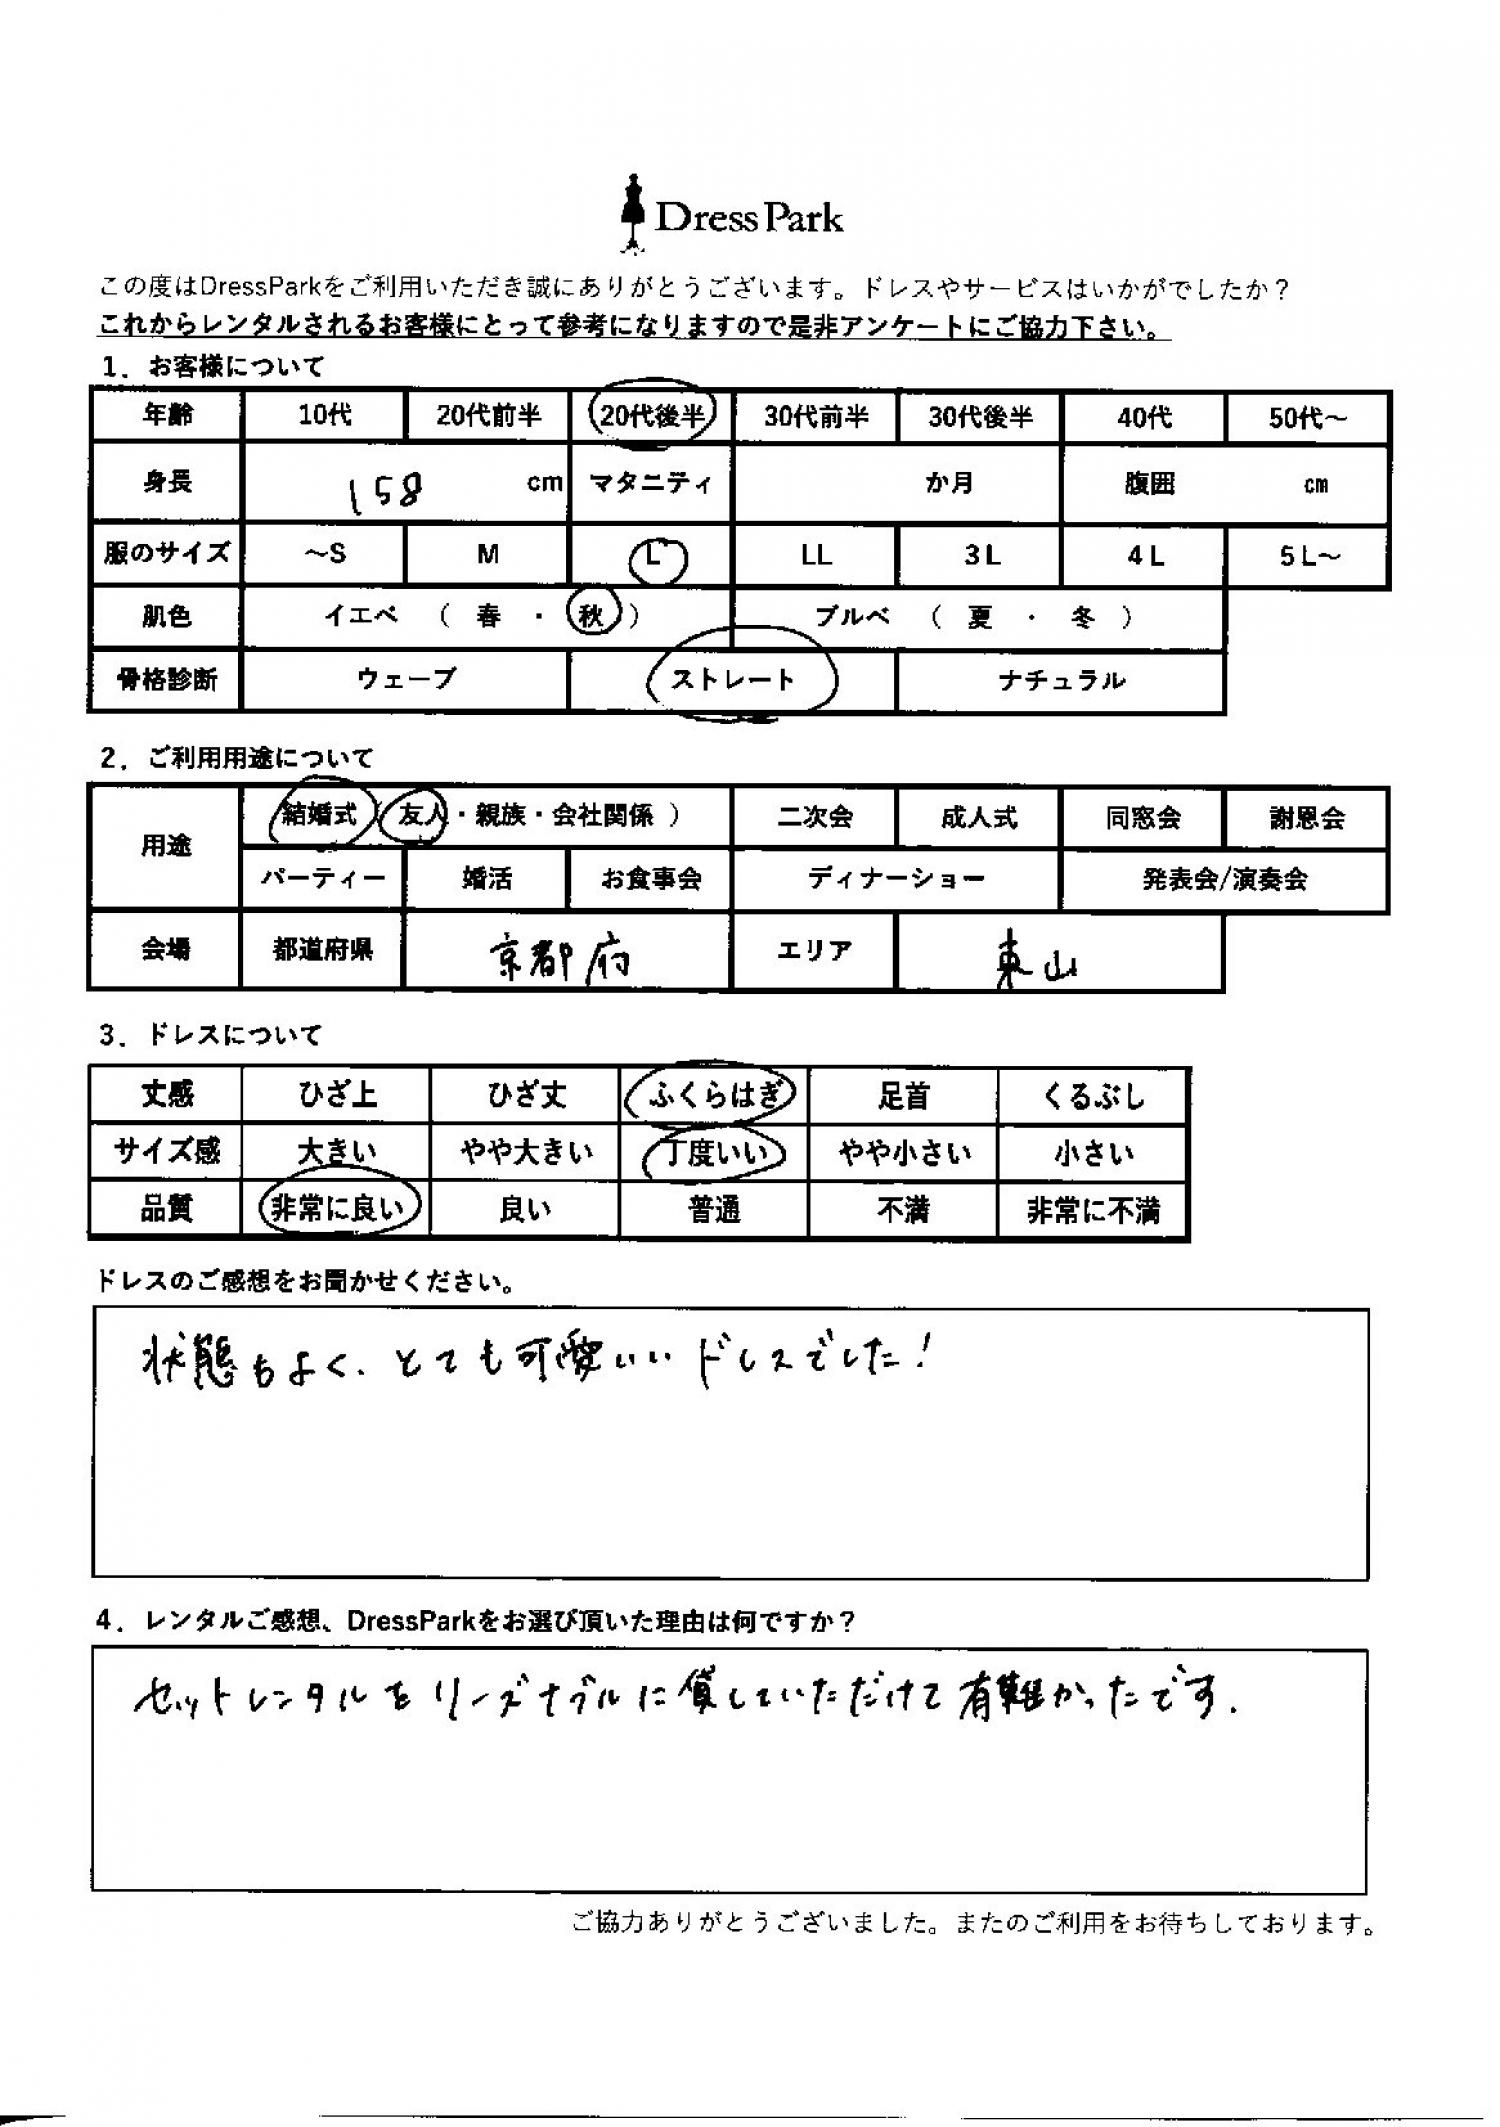 Dress Park
この度はDressParkをご利用いただき誠にありがとうございます。ドレスやサービスはいかがでしたか？
これからレンタルされるお客様にとって参考になりますので是非アンケートにご協力下さい。
1．お客様について
年齢 10代 20代前半 20代後半 30代前半 30代後半 40代 50代～
身長 158 cm マタニティ か月 腹囲 ㎝
服のサイズ ～S M L LL 3L 4L 5L～
肌色 イエベ （ 春 ・ 秋 ） ブルベ （ 夏 ・ 冬 ）
骨格診断 ウェーブ ストレート ナチュラル
2．ご利用用途について
用途 結婚式（友人・親族・会社関係 ） 二次会 成人式 同窓会 謝恩会
パーティー 婚活 お食事会 ディナーショー 発表会/演奏会
会場 都道府県 京都府 エリア 東山
3．ドレスについて
丈感 ひざ上 ひざ丈 ふくらはぎ 足首 くるぶし
サイズ感 大きい やや大きい 丁度いい やや小さい 小さい
品質 非常に良い 良い 普通 不満 非常に不満
ドレスのご感想をお聞かせください。
状態もよく、とても可愛いいドレスでした！
4．レンタルご感想、DressParkをお選び頂いた理由は何ですか？
セットレンタルをリーズナブルに貸していただけて有難かったです.
ご協力ありがとうございました。またのご利用をお待ちしております。